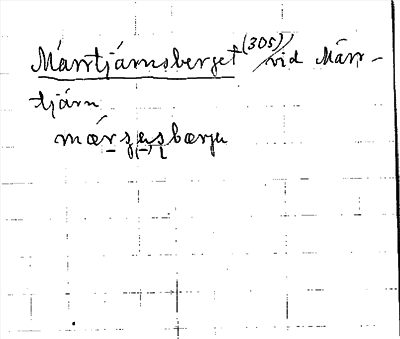 Märrtjärnsberget (305) / vid Märr-
tjärn
mærʒɛnsbærju